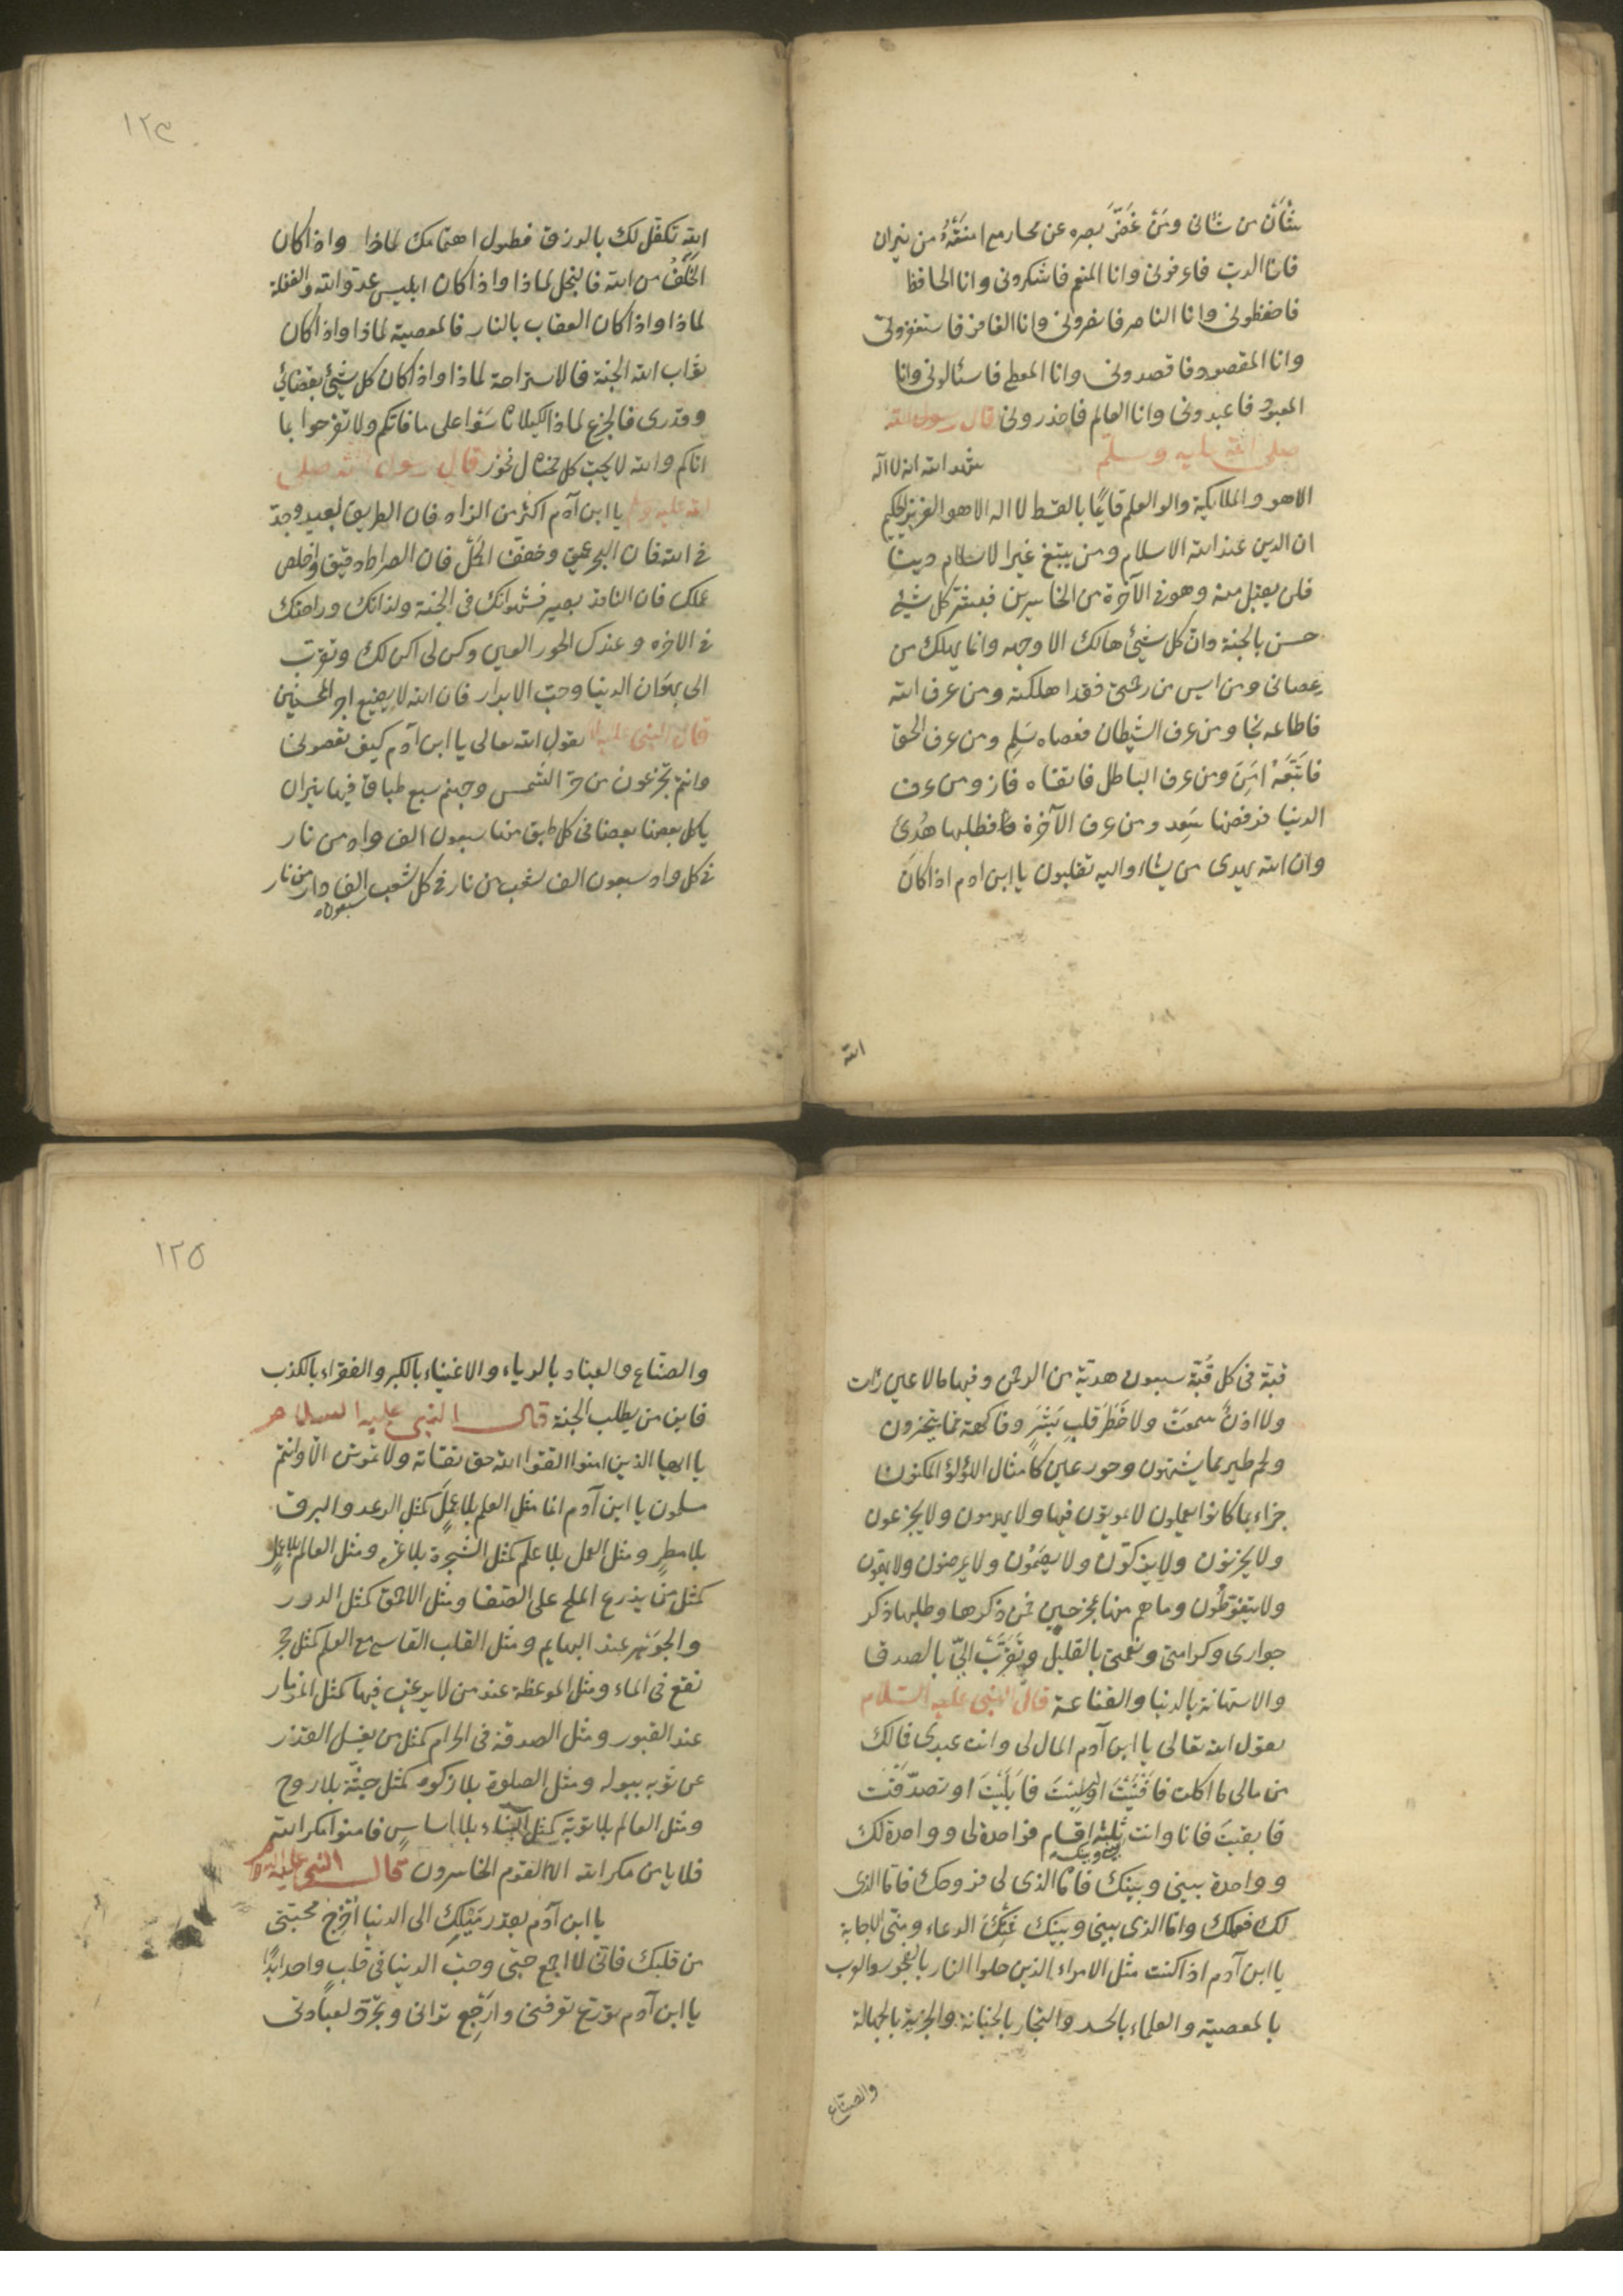 شأن من شانى ومن غَضَّ بصره عن محارمى امنته من نيران
فانا الرب فاعرفونى وانا المنعم فاشكرونى وانا الحافظ
فاحفظونى وانا الناصر فانصرونى وانا الغافر فاستغفرونى
وانا المقصود فاقصدونى وانا المعطى فاسئالونى وانا
المعبود فاعبدونى وانا العالم فاحذرونى قال رسول الله
صلى الله عليه وسلم شهد الله انه لا اله
الا هو والملائكة والوا العلم قايمًا بالقسط لا اله الا هو العزيز الحكيم
ان الدين عند الله الاسلام ومن يبتغ غير الاسلام دينا
فلن يقبل منه وهو فى الآخرة من الخاسرين فبشر كل شئ
حسن بالجنة وان كل شيئ هالك الا وجهه وانما يهلك من
يعصانى ومن ايس من رحمتى فقد اهلكته ومن عرف الله
فاطاعه نجا ومن عرف الشيطان فعصاه سَلِم ومن عرف الحق
فاتبَعَهُ امِنَ ومن عرف الباطل فاتقاه فاز ومن عرف
الدنيا فرفضها سَعِد ومن عرف الآخرة فطلبها هُدِىَ
وان الله يهدى من يشاء واليه تقلبون يا ابن ادم اذا كان
الله
١٢٤
الله تكفل لك بالرزق فطول اهتمامك لماذا واذا كان
الخَلَفُ من الله فالبخل لماذا واذا كان ابليس عدو الله فالغفلة
لماذا واذا كان العقاب بالنار فالمعصية لماذا واذا كان
ثواب الله الجنة فالاستراحة لماذا واذا كان كل شيئ بقضائي
وقدرى فالجزع لماذا لكيلا تاسَوْا على ما فاتكم ولا تفرحوا بما
اتاكم والله لا يحب كل مختال فخور قال رسول الله صلى
الله عليه وسلم يا ابن آدم اكثر من الزاد فان الطريق بعيد وجدّ
فى الله فان البحر عميق وخفف الكُلَّ فان الصراط دقيق واخلص
عملك فان الناقد بصير فشهواتك فى الجنة ولذاتك وراحتك
فى الاخره وعندك الحور العين وكن لى اكن لك وتقرب
الى بهوان الدنيا وحب الابرار فان الله لا يضيع اجر المحسنين
قال النبى عليه السلام يقول الله تعالى يا ابن آدم كيف تعصونى
وانتم تجزعون من حر الشمس وجهنم سبع طباق فيها نيران
ياكل بعضها بعضا فى كل طبق منها سبعون الف واد من نار
فى كل واد سبعون الف شعب من نار فى كل شعب سبعون الف دار من نار
قبة فى كل قُبّة سبعون هدية من الرحمن وفيها ما لا عين رَات
ولا اذنٌ سمعَتْ ولا خَطَرَ قلبِ بَشَرٍ وفاكهة مما يتخيرون
ولحم طير مما يشتهون وحور عين كأمثال اللؤلؤ المكنون
جزاء بما كانوا يعملون لا يموتون فيها ولا يهرمون ولا يجزعون
ولا يحزنون ولا يبكون ولا يصَمُوْن ولا يمرضون ولا يبولون
ولا يتغوّطُون وما هم منها بمخرجين فمن ذكرها وطلبها ذكر
جوارى وكرامتى ونعمتى بالقليل وتَقرّبَ اليّ بالصدق
والاستهانة بالدنيا والقناعة قال النبى عليه السلام
يقول الله تعالى يا ابن آدم المال لى وانت عبدى فمالك
من مالى ما اكلت فافْنَيْتَ او لَبِسْتَ فابلَيْتَ او تصدّقْت
فابقيتَ فانا وانت ثلثة اقسام فواحدة لى وواحدة لك
وواحدة بينى وبينك فاما الذى لى فروحك فاما الذى
لك فعملك واما الذى بينى وبينك عَنْكَ الدعاء ومنّى الاجابة
يا ابن آدم اذا كنت مثل الامراء الذين دخلوا النار بالفجور والعرب
بالمعصية والعلماء بالحسد والتجار بالخيانة والحرية بالجهالة
والصنّاع
١٢٥
والصنّاع والعباد بالرياء والاغنياء بالكبر والفقراء بالكذب
فاين من يطلب الجنة قال النبى عليه السلام
يا ايها الذين امنوا اتقوا الله حق تقاته ولا تموتن الا وانتم
مسلمون يا ابن آدم انما مثل العلم بلا عملٍ كمثل الرعد والبرق
بلا مطرٍ ومثل العمل بلا علم كمثل الشجرة بلا ثمر ومثل العالم بلا عملٍ
كمثل من يزرع الملح على الصفا ومثل الاحمق كمثل الدرر
والجوهر عند البهايم ومثل القلب القاسى مع العلم كمثل حجر
نقع فى الماء ومثل الموعظة عند من لا يرغب فيها كمثل المزمار
عند القبور ومثل الصدقة فى الحرام كمثل من يغسل القذر
عن ثوبه ببوله ومثل الصلوة بلا زكوة كمثل جثّة بلا روح
ومثل العالم بلا توبة كمثل البناء بلا اساسٍ فامنوا مكر الله
فلا يامن مكر الله الا القوم الخاسرون قال النبى عليه السلام
يا ابن آدم بقدر مَيْلِكَ الى الدنيا اُخرِج محبتى
من قلبك فانى لا اجمع حبّى وحب الدنيا فى قلبٍ واحد ابدًا
يا ابن آدم تورّع تعرفنى وارجع ترانى وتجرّد لعبادتى